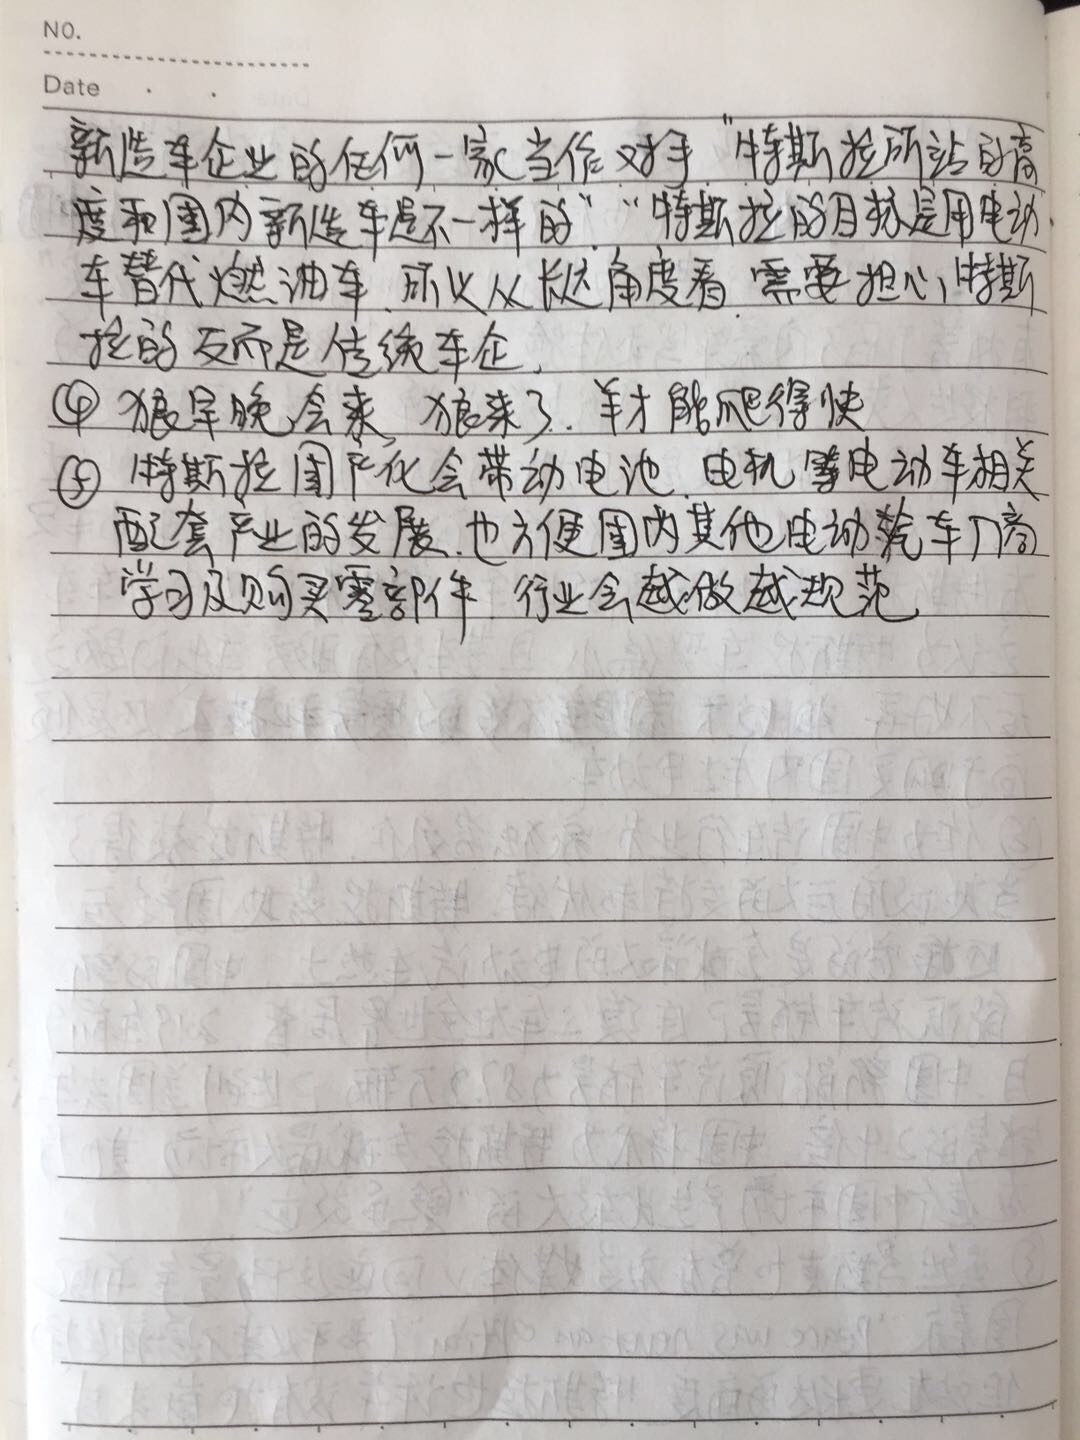 NO.
Date
新造车企业的任何一家当作对手 "特斯拉所站的高
度和国内新造车是不一样的" "特斯拉的目标是用电动
车替代燃油车.所以从长远角度看.需要担心特斯
拉的反而是传统车企.
④ 狼早晚会来,狼来了.羊才能跑得快
⑤ 特斯拉国产化会带动电池.电机等电动车相关
配套产业的发展.也方便国内其他电动汽车厂商
学习及购买零部件.行业会越做越规范